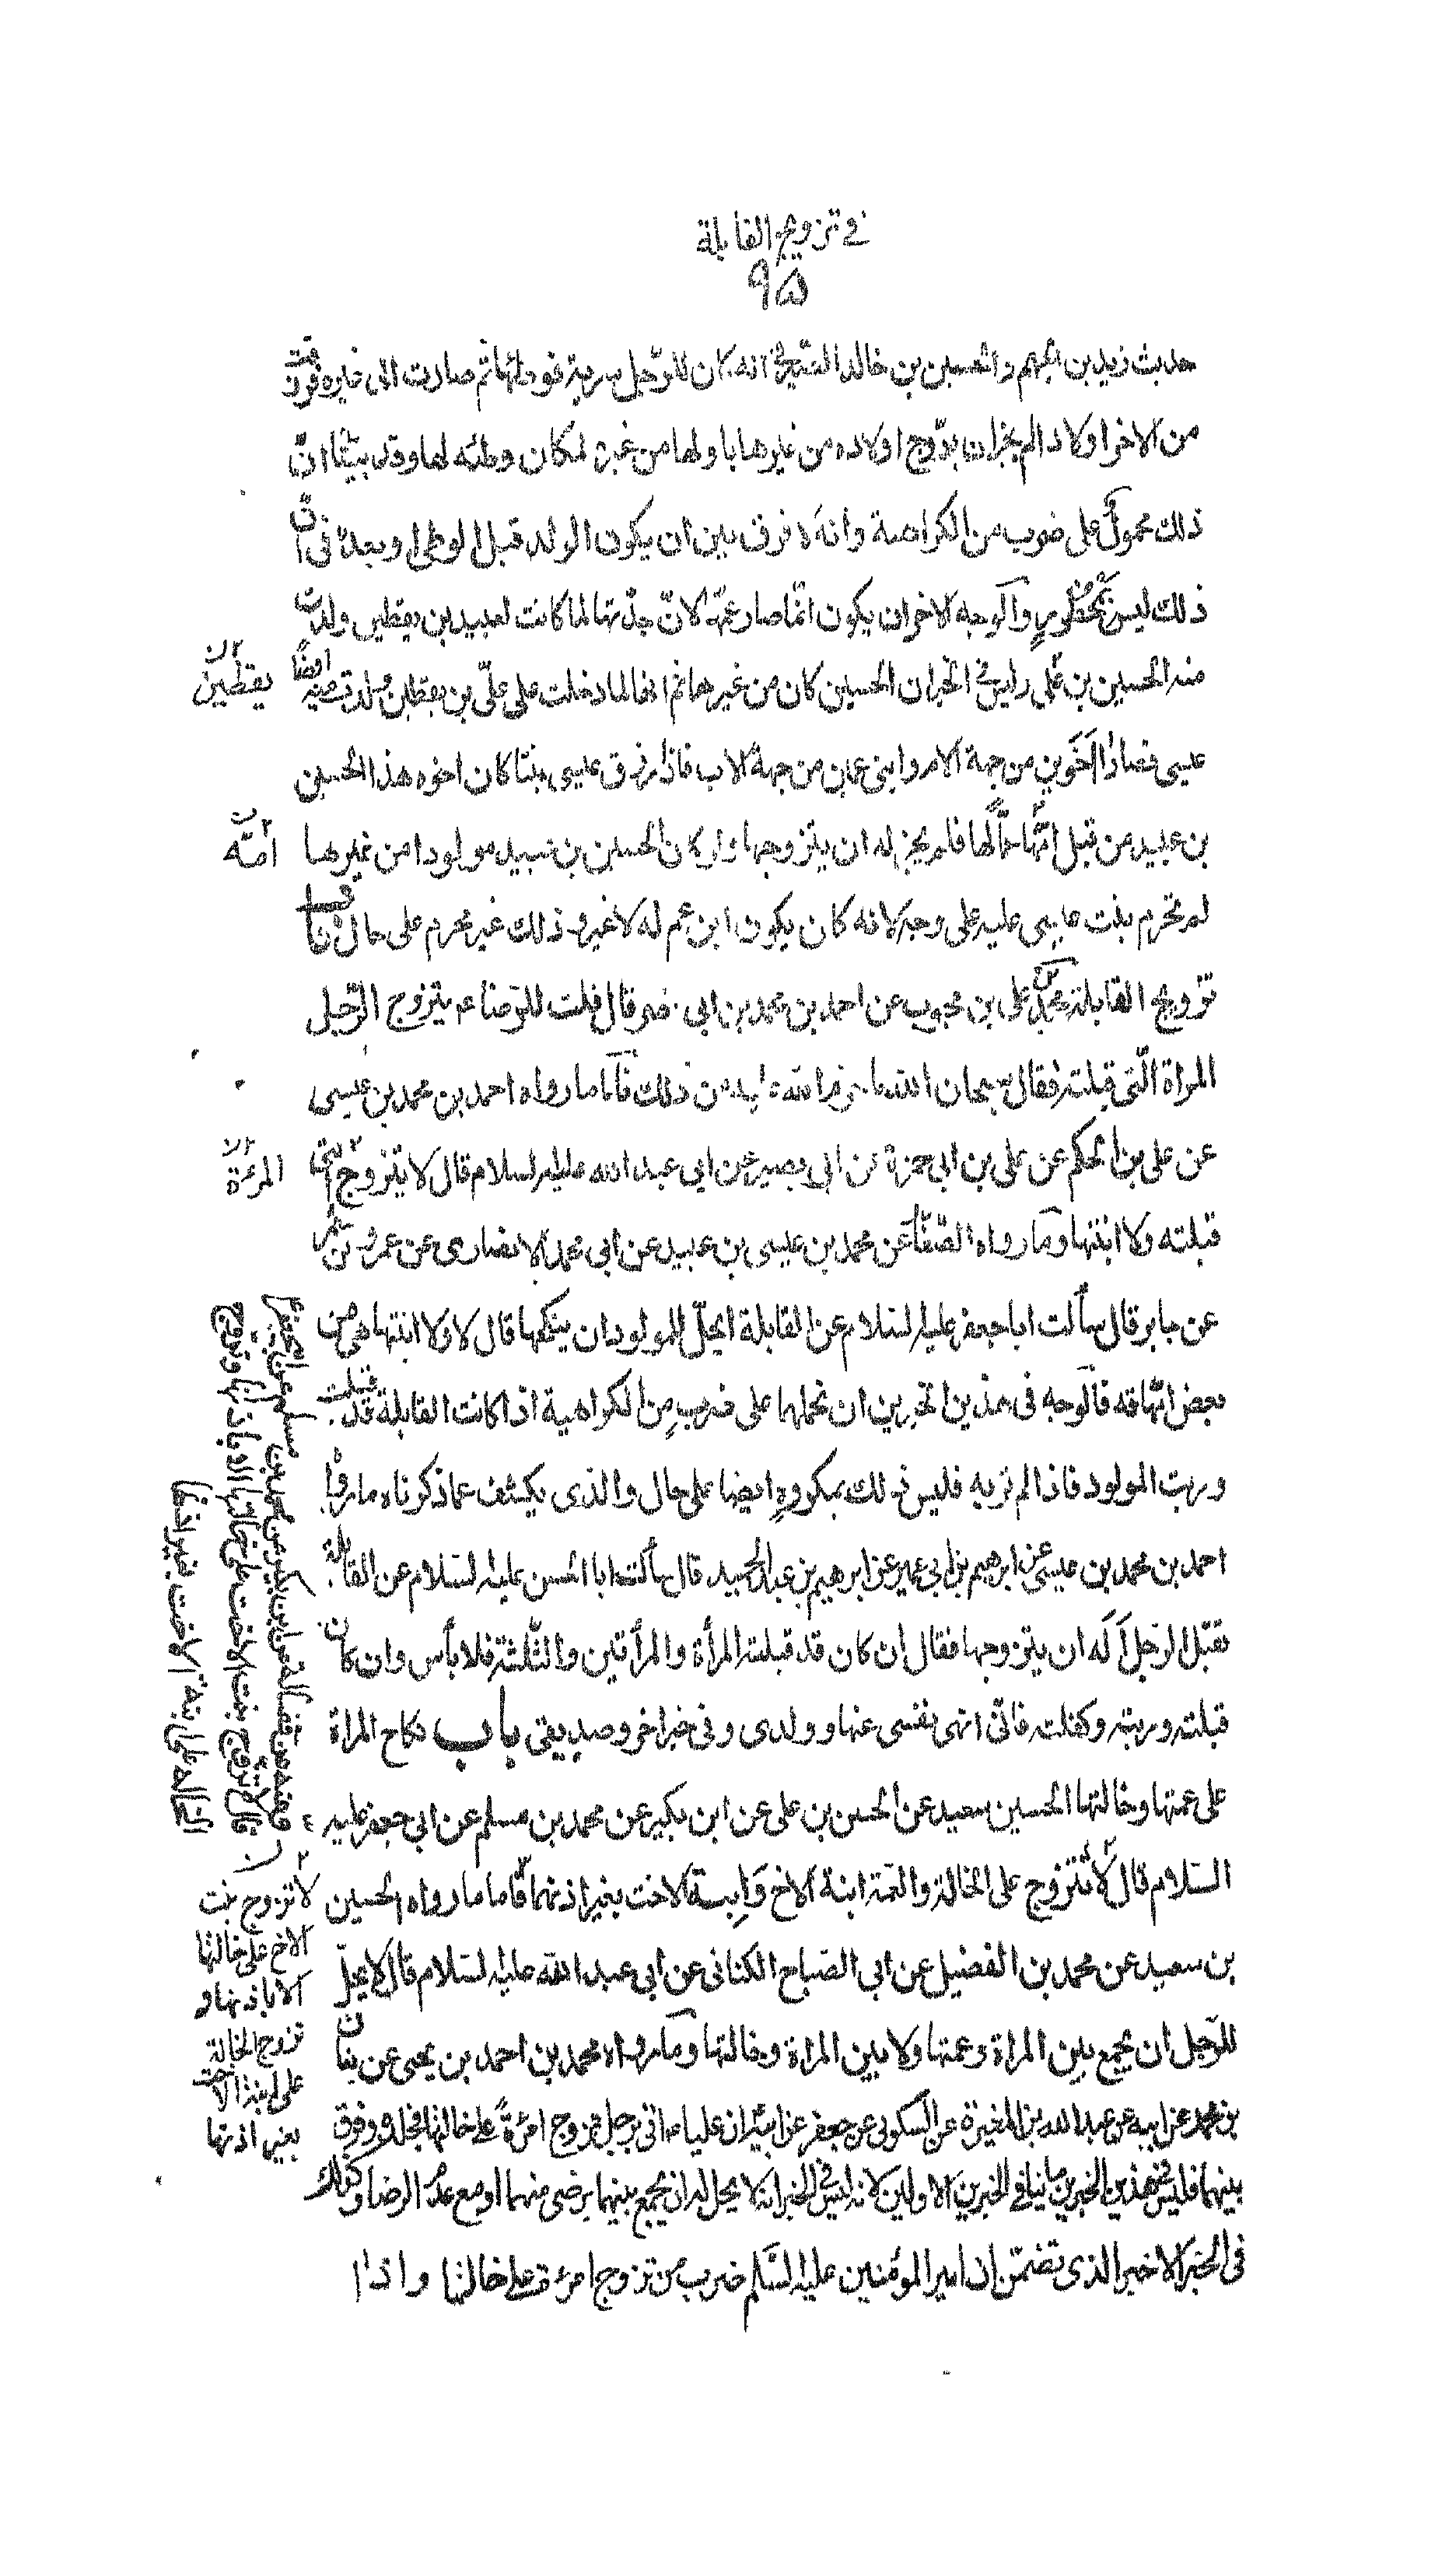 في تزويج القابلة
٩۵
حديث زيد بن الجهم والحسين بن خالد الصيرفي انه كان للرّجل سرية فوطئها ثم صارت الى غيره فرزقت
من الاخر اولادا لم يجز ان يزوّج اولاده من غيرها باولادها من غيره لمكان وطئه لها وقد بيّنا انّ
ذلك محمول على ضرب من الكراهية وانه لا فرق بين ان يكون الولد قبل الوطى او بعده في انّ
ذلك ليس بمحظور والوجه الاخر ان يكون انّما صار عمّها لانّ جدّتها لما كانت لعبيد بن يقطين ولدت
منه الحسين بن على وليس في الخبر ان الحسين كان من غيرها ثم انها لما دخلت على علىّ بن يقطين ولدت منه ايضا
يقطين
عيسى فصارا اخوين من جهة الام وابنى عمين من جهة الاب فاذا رزق عيسى بنتا كان اخوه هذا الحسين
بن عبيد من قبل امّها عمّا لها فلم يجز له ان يتزوجها ولو كان الحسين بن عبيد مولودا من غيرها
امّه
لم تحرم بنت عيسى عليه على وجه لانه كان يكون ابن عم له لا غير وذلك غير محرم على حال باب
تزويج القابلة محمد بن على بن محبوب عن احمد بن محمد بن ابى نصر قال قلت للرّضا ع يتزوج الرّجل
المراة الّتى قبلته فقال سبحان الله ما حرم الله عليه من ذلك فامّا ما رواه احمد بن محمد بن عيسى
عن على بن الحكم عن على بن ابى حمزة عن ابى بصير عن ابى عبد الله عليه السلام قال لا يتزوج الّتى
المرءة
قبلته ولا ابنتها وما رواه الصّفّار عن محمد بن عيسى بن عبيد عن ابى محمد الانصارى عن عمرو بن شمر
عن جابر قال سألت ابا جعفر عليه السلام عن القابلة ايحلّ للمولود ان ينكحها قال لا ولا ابنتها هى من
بعض امّهاته فالوجه فى هذين الخبرين ان نحملهما على ضرب من الكراهية اذا كانت القابلة قد قبلت
وربت المولود فاذا لم تربه فليس ذلك بمكروه ايضا على حال والذى يكشف عما ذكرناه ما رواه
احمد بن محمد بن عيسى عن ابرهيم بن ابى عمير عن ابرهيم بن عبد الحميد قال سألت ابا الحسن عليه السلام عن القابلة
تقبّل الرّجل اله ان يتزوجها فقال ان كان قد قبلته المرأة والمرأتين والثّلثة فلا بأس وان كان
قبلته وربته وكفلته فانّى انهى نفسى عنها وولدى وفى خبر اخر وصديقى باب نكاح المراة
على عمتها وخالتها الحسين بن سعيد عن الحسن بن على عن ابن بكير عن محمد بن مسلم عن ابى جعفر عليه
السّلام قال لا تتزوج على الخالة والعمة ابنة الاخ وابنة الاخت بغير اذنهما فامّا ما رواه الحسين
بن سعيد عن محمد بن الفضيل عن ابى الصّباح الكنانى عن ابى عبد الله عليه السّلام قال لا يحلّ
للرّجل ان يجمع بين المراة وعمتها ولا بين المراة وخالتها وما رواه محمد بن احمد بن يحيى عن بنان
بن محمد عن ابيه عن عبد الله بن المغيرة عن السكونى عن جعفر عن ابيه ان عليا ع اتى برجل تزوج امرءة على خالتها فجلده وفرق
بينهما فليس فى هذين الخبرين ما ينافى الخبرين الاولين لانه ليس فى الخبر انه لا يحل له ان يجمع بينهما برضى منهما او مع عدم الرضا وكذلك
فى الخبر الاخير الذى تضمّن ان امير المؤمنين عليه السّلم ضرب من تزوج امرءة على خالتها واذا
لا تزوج بنت
الاخ على خالتها
الا باذنها و
تزوج الخالة
على ابنة الاخت
بغير اذنها